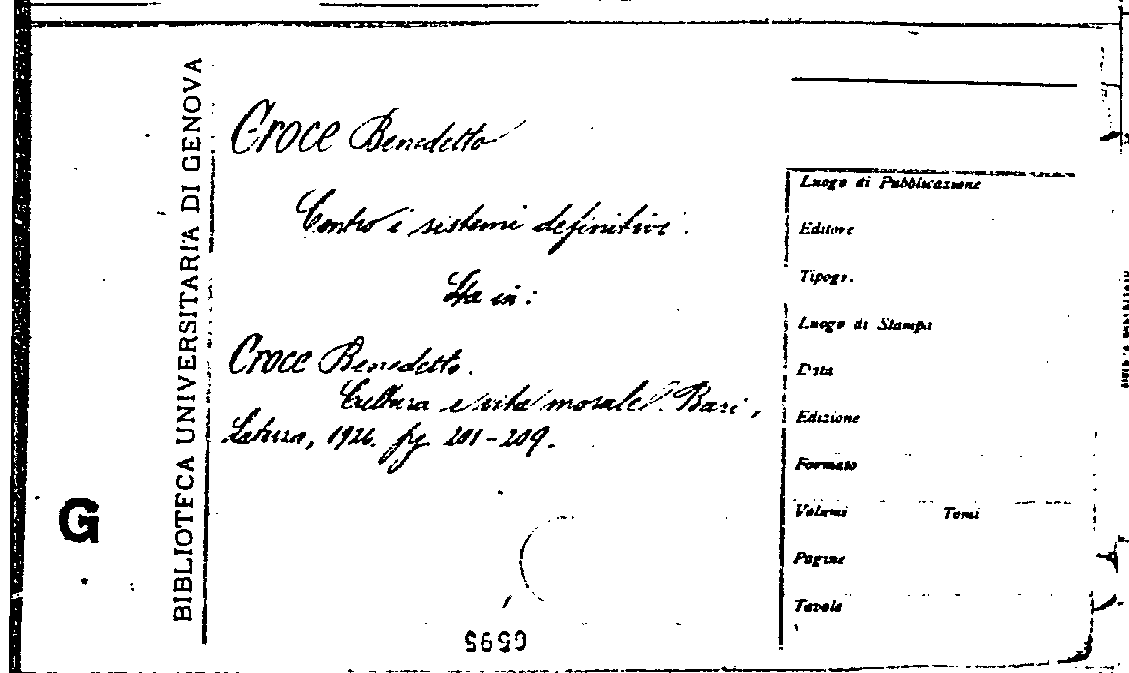 BIBLIOTECA UNIVERSITARIA DI GENOVA
Croce Benedetto
Contro i sistemi definitivi.
Sta in:
Croce Benedetto.
Cultura e vita morale. Bari,
Laterza, 1926. pg 201-209.
G
Luogo di Pubblicazione
Editore
Tipogr.
Luogo di Stampa
Data
Edizione
Formato
Volumi Tomi
Pagine
Tavole